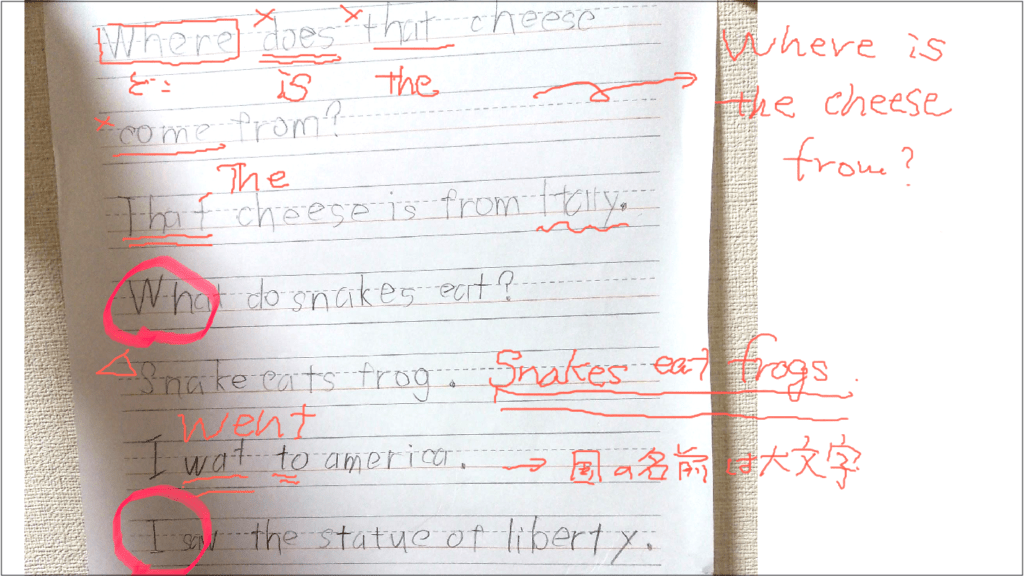 Where does that cheese
どこ is the
Where is
the cheese
from?
come from?
The
That cheese is from Itally.
What do snakes eat?
Snake eats frog. Snakes eat frogs.
went
I wat to america. → 国の名前は大文字
I saw the statue of liberty.